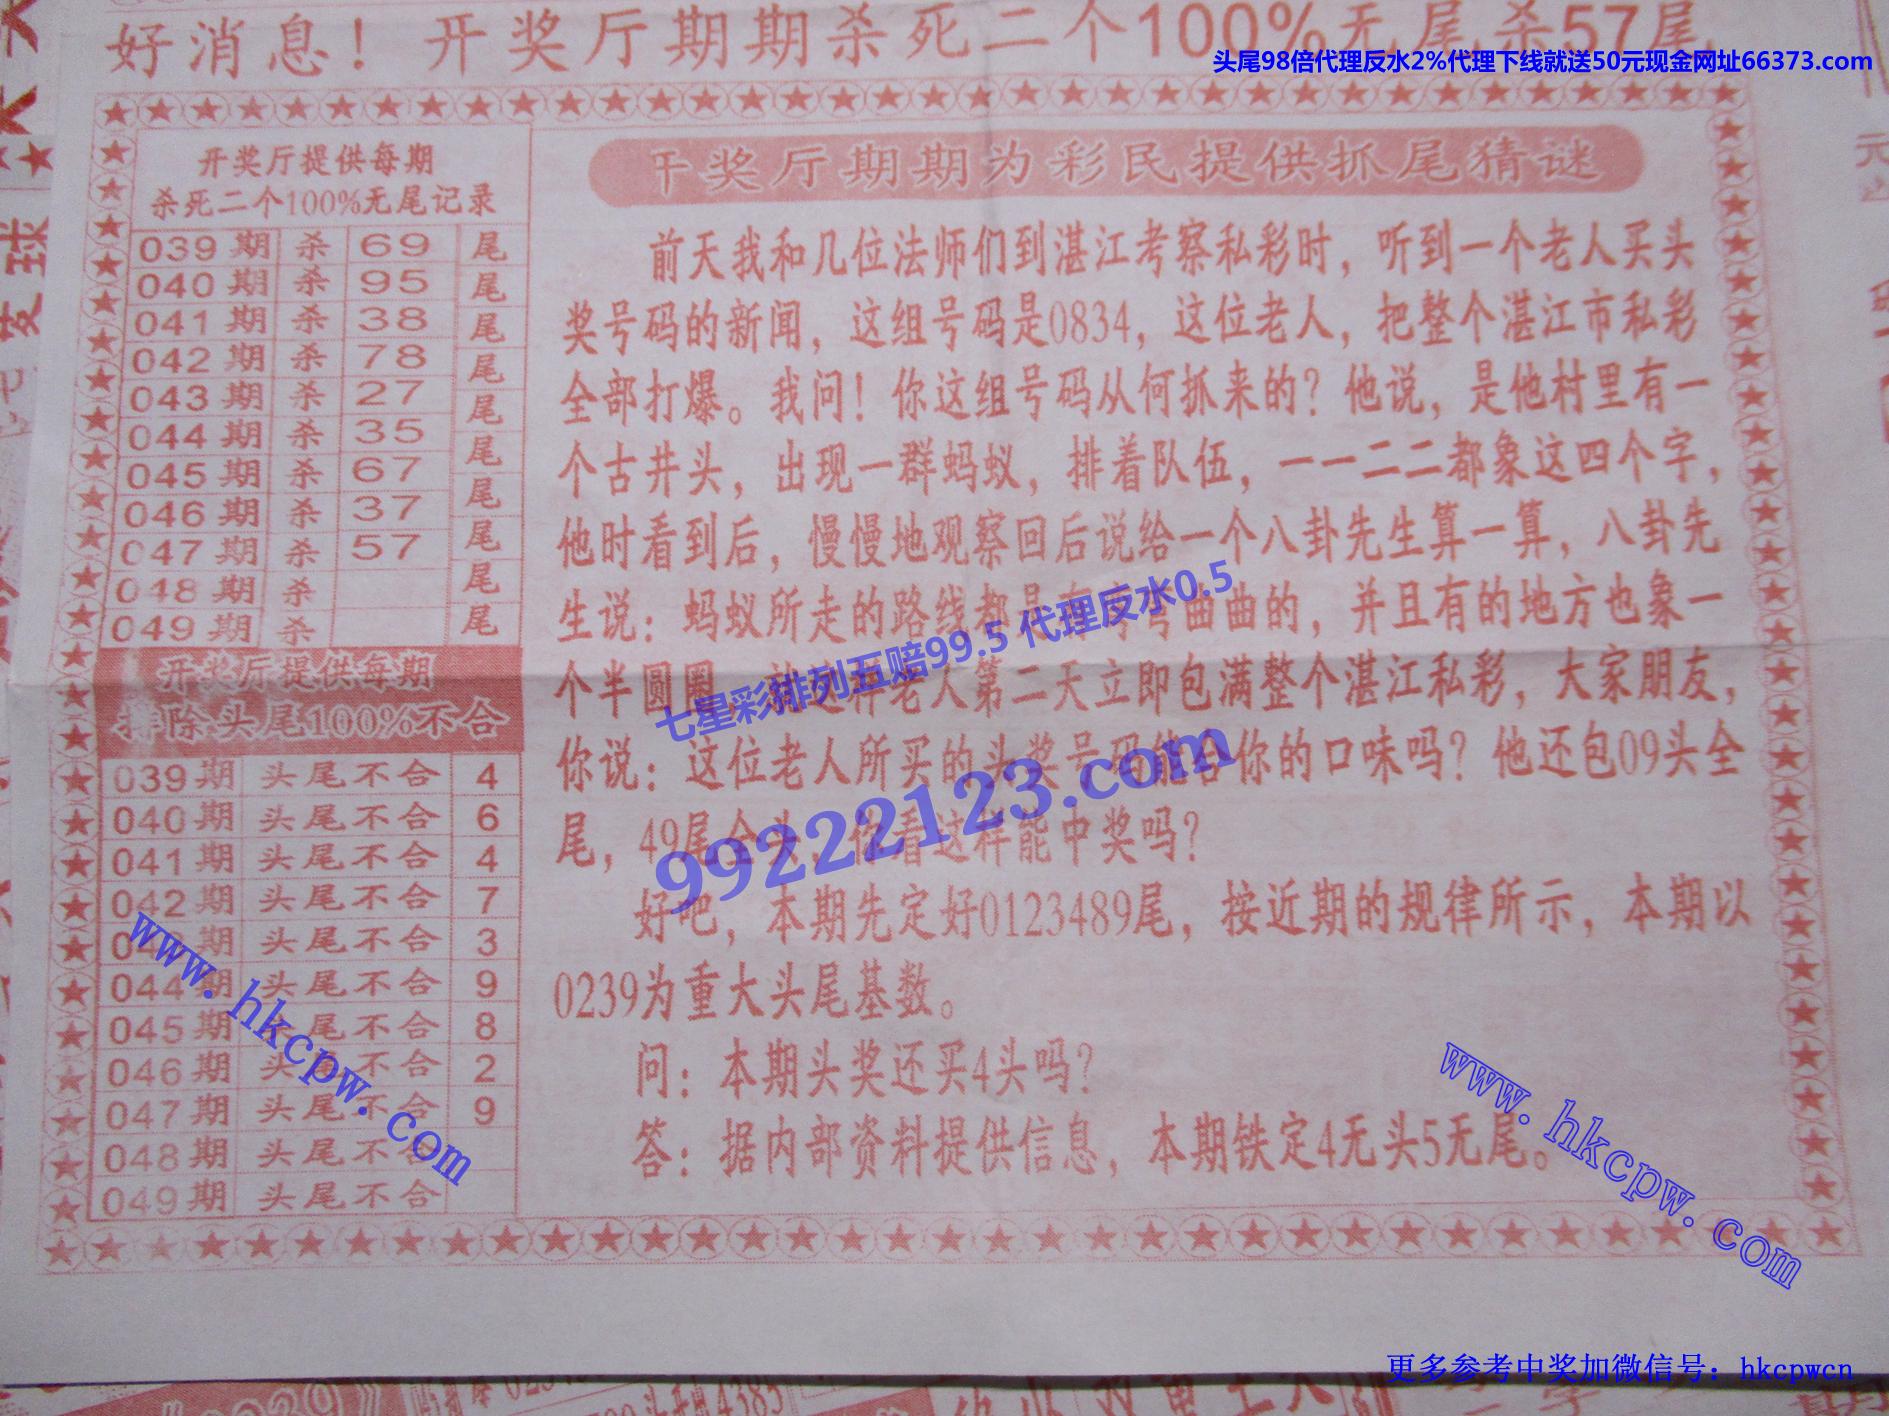 好消息！开奖厅期期杀死二个100%无尾杀57尾
头尾98倍代理反水2%代理下线就送50元现金网址66373.com
开奖厅提供每期
杀死二个100%无尾记录
039期 杀 69 尾
040期 杀 95 尾
041期 杀 38 尾
042期 杀 78 尾
043期 杀 27 尾
044期 杀 35 尾
045期 杀 67 尾
046期 杀 37 尾
047期 杀 57 尾
048期 杀 尾
049期 杀 尾
开奖厅提供每期
排除头尾100%不合
039期 头尾不合 4
040期 头尾不合 6
041期 头尾不合 4
042期 头尾不合 7
043期 头尾不合 3
044期 头尾不合 9
045期 头尾不合 8
046期 头尾不合 2
047期 头尾不合 9
048期 头尾不合
049期 头尾不合
开奖厅期期为彩民提供抓尾猜谜
前天我和几位法师们到湛江考察私彩时，听到一个老人买头
奖号码的新闻，这组号码是0834，这位老人，把整个湛江市私彩
全部打爆。我问！你这组号码从何抓来的？他说，是他村里有一
个古井头，出现一群蚂蚁，排着队伍，一一二二都象这四个字，
他时看到后，慢慢地观察回后说给一个八卦先生算一算，八卦先
生说：蚂蚁所走的路线都是弯曲曲的，并且有的地方也象一
个半圆圈，老人第二天立即包满整个湛江私彩，大家朋友，
你说：这位老人所买的头奖号码能合你的口味吗？他还包09头全
尾，49尾全头，你看这样能中奖吗？
好吧，本期先定好0123489尾，按近期的规律所示，本期以
0239为重大头尾基数。
问：本期头奖还买4头吗？
答：据内部资料提供信息，本期铁定4无头5无尾。
七星彩排列五赔99.5 代理反水0.5
99222123.com
www.hkcpw.com
www.hkcpw.com
更多参考中奖加微信号：hkcpwcn